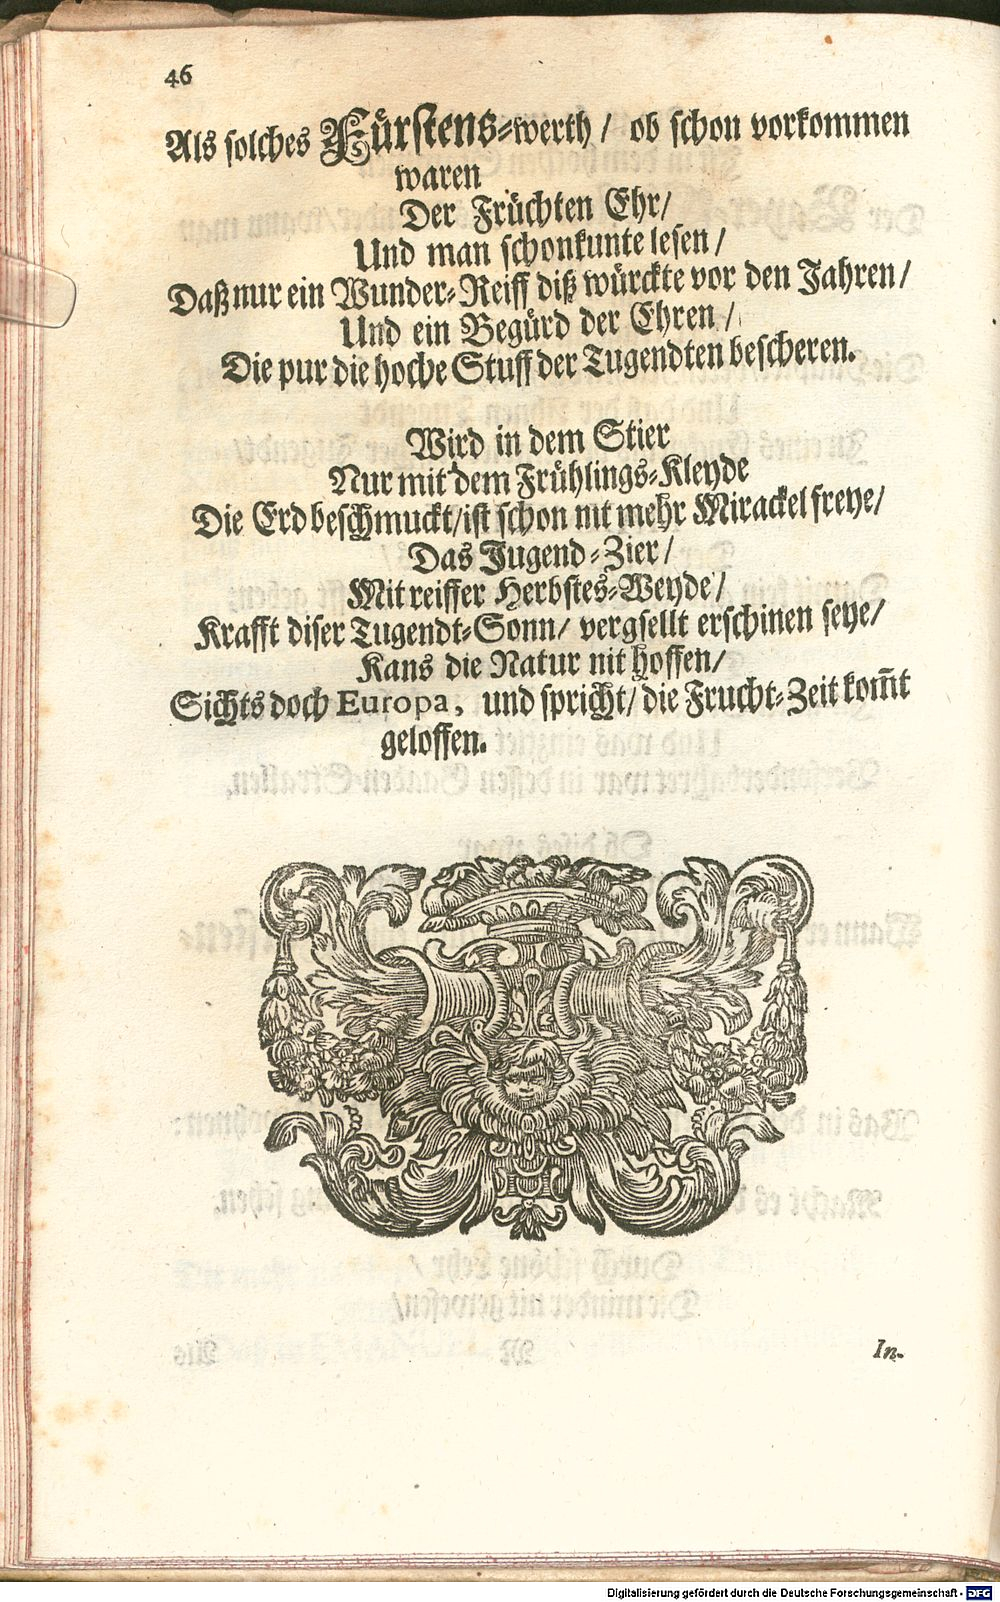 46
Als solches Fürstens-werth / ob schon vorkommen
waren
Der Früchten Ehr/
Und man schonkunte lesen /
Daß nur ein Wunder-Reiff diß würckte vor den Jahren /
Und ein Begürd der Ehren /
Die pur die hoche Stuff der Tugendten bescheren.
Wird in dem Stier
Nur mit dem Frühlings-Kleyde
Die Erd beschmuckt/ist schon nit mehr Mirackel freye/
Das Jugend-Zier /
Mit reiffer Herbstes-Weyde /
Krafft diser Tugendt-Sonn/ vergsellt erschinen seye/
Kans die Natur nit hoffen/
Sichts doch Europa, und spricht/ die Frucht-Zeit kom̃t
geloffen.
In-
Digitalisierung gefördert durch die Deutsche Forschungsgemeinschaft - DFG